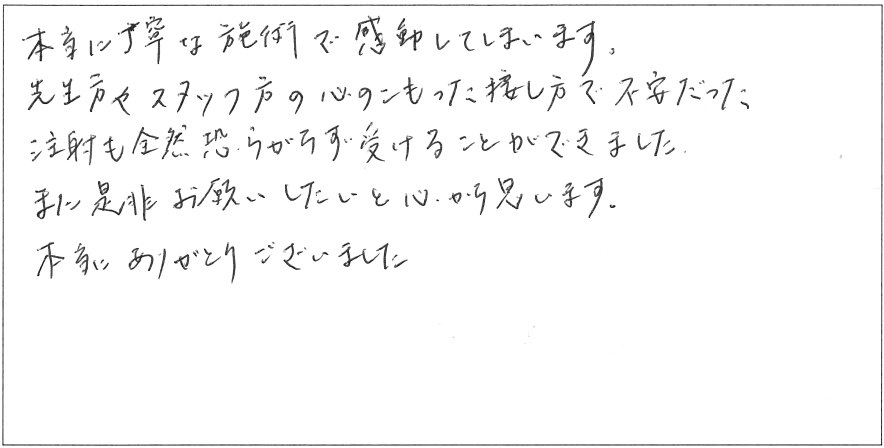 本当に丁寧な施術で感動してしまいます。
先生方やスタッフ方の心のこもった接し方で不安だった
注射も全然恐らがらず受けることができました
また是非お願いしたいと心から思います。
本当にありがとうございました